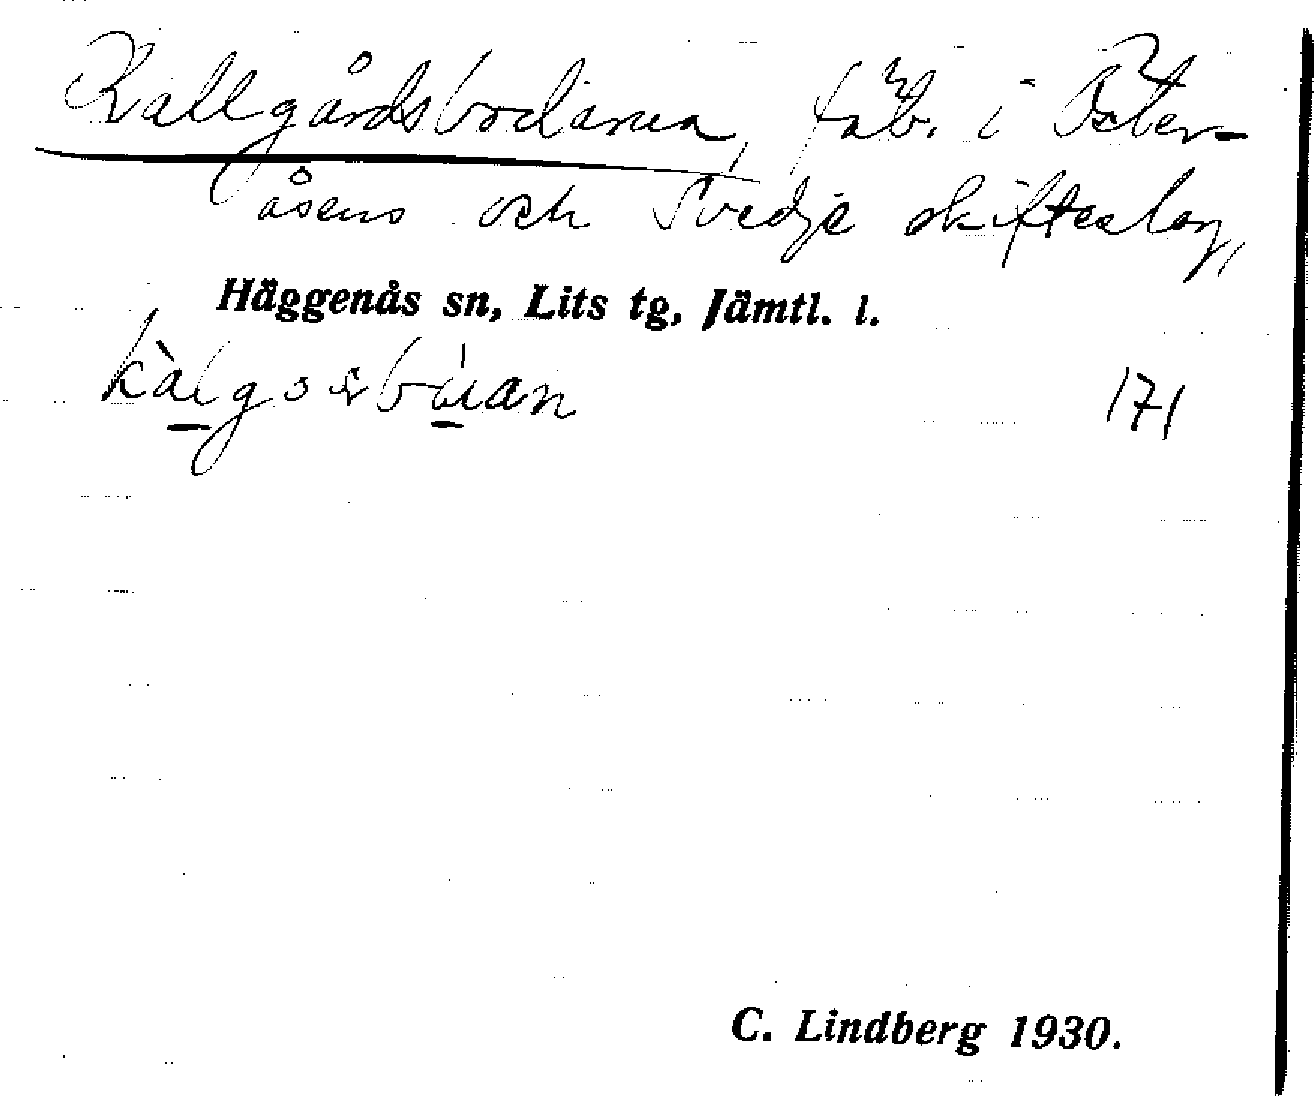 Kallgårdsbodarna, fäb. i Öster-
åsens och Svedje skifteslag,
Häggenås sn, Lits tg, Jämtl. l.
171
C. Lindberg 1930.